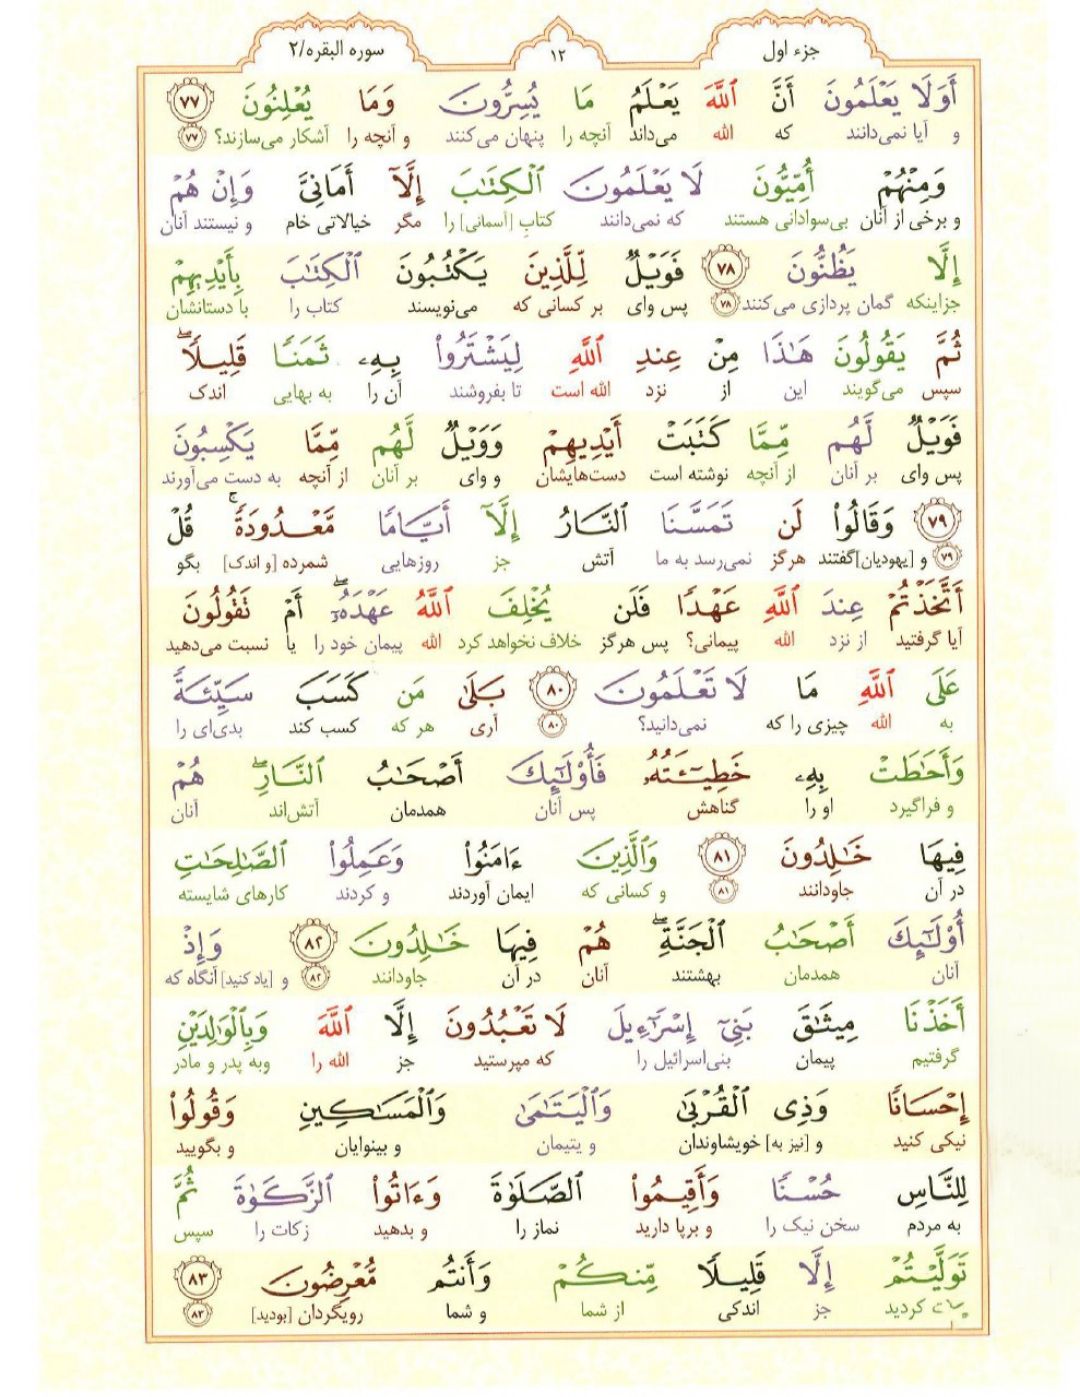 جزء اول ۱۲ سوره البقره/۲
أَوَلَا يَعْلَمُونَ أَنَّ ٱللَّهَ يَعْلَمُ مَا يُسِرُّونَ وَمَا يُعْلِنُونَ ۷۷
و آیا نمی‌دانند که الله می‌داند آنچه را پنهان می‌کنند و آنچه را آشکار می‌سازند؟ ۷۷
وَمِنْهُمْ أُمِّيُّونَ لَا يَعْلَمُونَ ٱلْكِتَٰبَ إِلَّآ أَمَانِىَّ وَإِنْ هُمْ
و برخی از آنان بی‌سوادانی هستند که نمی‌دانند کتابِ [آسمانی] را مگر خیالاتی خام و نیستند آنان
إِلَّا يَظُنُّونَ ۷۸ فَوَيْلٌ لِّلَّذِينَ يَكْتُبُونَ ٱلْكِتَٰبَ بِأَيْدِيهِمْ
جزاینکه گمان پردازی می‌کنند ۷۸ پس وای بر کسانی که می‌نویسند کتاب را با دستانشان
ثُمَّ يَقُولُونَ هَٰذَا مِنْ عِندِ ٱللَّهِ لِيَشْتَرُوا۟ بِهِۦ ثَمَنًا قَلِيلًا ۖ
سپس می‌گویند این از نزد الله است تا بفروشند آن را به بهایی اندک
فَوَيْلٌ لَّهُم مِّمَّا كَتَبَتْ أَيْدِيهِمْ وَوَيْلٌ لَّهُم مِّمَّا يَكْسِبُونَ
پس وای بر آنان از آنچه نوشته است دست‌هایشان و وای بر آنان از آنچه به دست می‌آورند
۷۹ وَقَالُوا۟ لَن تَمَسَّنَا ٱلنَّارُ إِلَّآ أَيَّامًا مَّعْدُودَةً ۚ قُلْ
۷۹ و [یهودیان] گفتند هرگز نمی‌رسد به ما آتش جز روزهایی شمرده [و اندک] بگو
أَتَّخَذْتُمْ عِندَ ٱللَّهِ عَهْدًا فَلَن يُخْلِفَ ٱللَّهُ عَهْدَهُۥٓ ۖ أَمْ تَقُولُونَ
آیا گرفتید از نزد الله پیمانی؟ پس هرگز خلاف نخواهد کرد الله پیمان خود را یا نسبت می‌دهید
عَلَى ٱللَّهِ مَا لَا تَعْلَمُونَ ۸۰ بَلَىٰ مَن كَسَبَ سَيِّئَةً
به الله چیزی را که نمی‌دانید؟ ۸۰ آری هر که کسب کند بدی‌ای را
وَأَحَٰطَتْ بِهِۦ خَطِيٓـَٔتُهُۥ فَأُو۟لَٰٓئِكَ أَصْحَٰبُ ٱلنَّارِ ۖ هُمْ
و فراگیرد او را گناهش پس آنان همدمان آتش‌اند آنان
فِيهَا خَٰلِدُونَ ۸۱ وَٱلَّذِينَ ءَامَنُوا۟ وَعَمِلُوا۟ ٱلصَّٰلِحَٰتِ
در آن جاودانند ۸۱ و کسانی که ایمان آوردند و کردند کارهای شایسته
أُو۟لَٰٓئِكَ أَصْحَٰبُ ٱلْجَنَّةِ ۖ هُمْ فِيهَا خَٰلِدُونَ ۸۲ وَإِذْ
آنان همدمان بهشتند آنان در آن جاودانند ۸۲ و [یاد کنید] آنگاه که
أَخَذْنَا مِيثَٰقَ بَنِىٓ إِسْرَٰٓءِيلَ لَا تَعْبُدُونَ إِلَّا ٱللَّهَ وَبِٱلْوَٰلِدَيْنِ
گرفتیم پیمان بنی‌اسرائیل را که مپرستید جز الله را وبه پدر و مادر
إِحْسَانًا وَذِى ٱلْقُرْبَىٰ وَٱلْيَتَٰمَىٰ وَٱلْمَسَٰكِينِ وَقُولُوا۟
نیکی کنید و [نیز به] خویشاوندان و یتیمان و بینوایان و بگویید
لِلنَّاسِ حُسْنًا وَأَقِيمُوا۟ ٱلصَّلَوٰةَ وَءَاتُوا۟ ٱلزَّكَوٰةَ ثُمَّ
به مردم سخن نیک را و برپا دارید نماز را و بدهید زکات را سپس
تَوَلَّيْتُمْ إِلَّا قَلِيلًا مِّنكُمْ وَأَنتُم مُّعْرِضُونَ ۸۳
کردید جز اندکی از شما و شما رویگردان [بودید] ۸۳